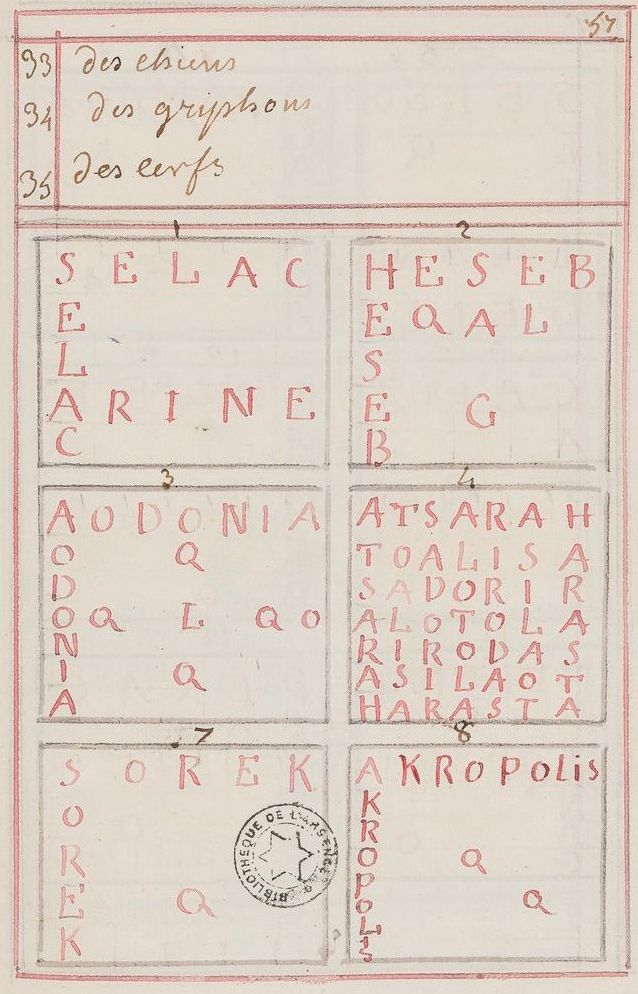 57
33 des chiens
34 des griphons
35 des cerfs
1
S E L A C
E
L
A R I N E
C
2
H E S E B
E Q A L
S
E G
B
3
A O D O N I A
O Q
D
O Q L Q O
N
I Q
A
4
A T S A R A H
T O A L I S A
S A D O R I R
A L O T O L A
R I R O D A S
A S I L A O T
H A R A S T A
7
S O R E K
O
R
E Q
K
BIBLIOTHEQUE DE L'ARSENAL
8
A K R O P O L i s
K
R
O Q
P
O Q
L
I
S